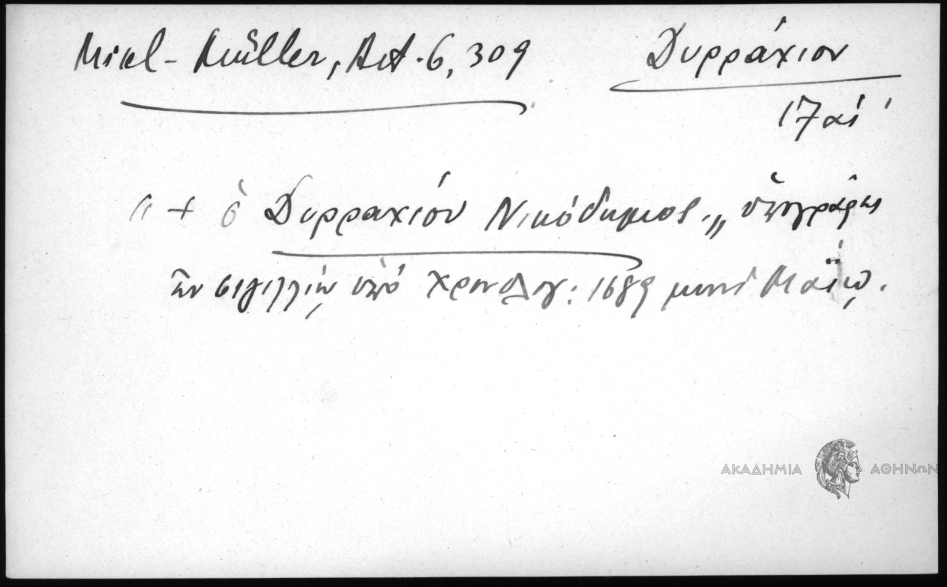 Mikl-Müller, Act. 6, 309
Δυρράχιον
17 αἰ
"+ ὁ Δυρραχίου Νικόδημος." ὑπογράφει
ἐν σιγιλλίῳ ὑπό χρονολογ: 1689 μηνί Μαΐῳ.
ΑΚΑΔΗΜΙΑ ΑΘΗΝΩΝ